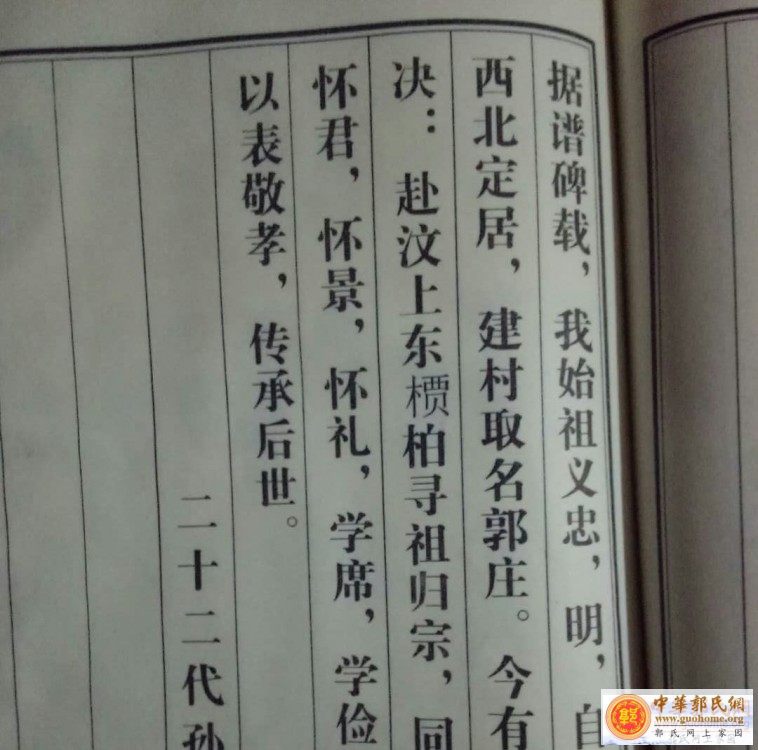 据谱碑载，我始祖义忠，明，自
西北定居，建村取名郭庄。今有
决：赴汶上东槚柏寻祖归宗，同
怀君，怀景，怀礼，学席，学俭
以表敬孝，传承后世。
二十二代孙
中華郭氏網
www.guohome.org
郭氏网上家园